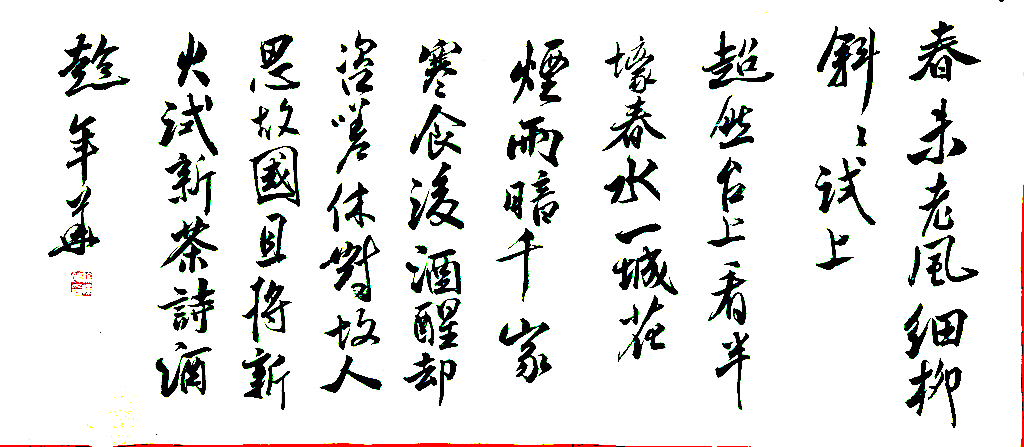 春未老風細柳
斜々試上
超然台上看半
壕春水一城花
煙雨暗千家
寒食後酒醒却
咨嗟休對故人
思故國且將新
火試新茶詩酒
趁年華